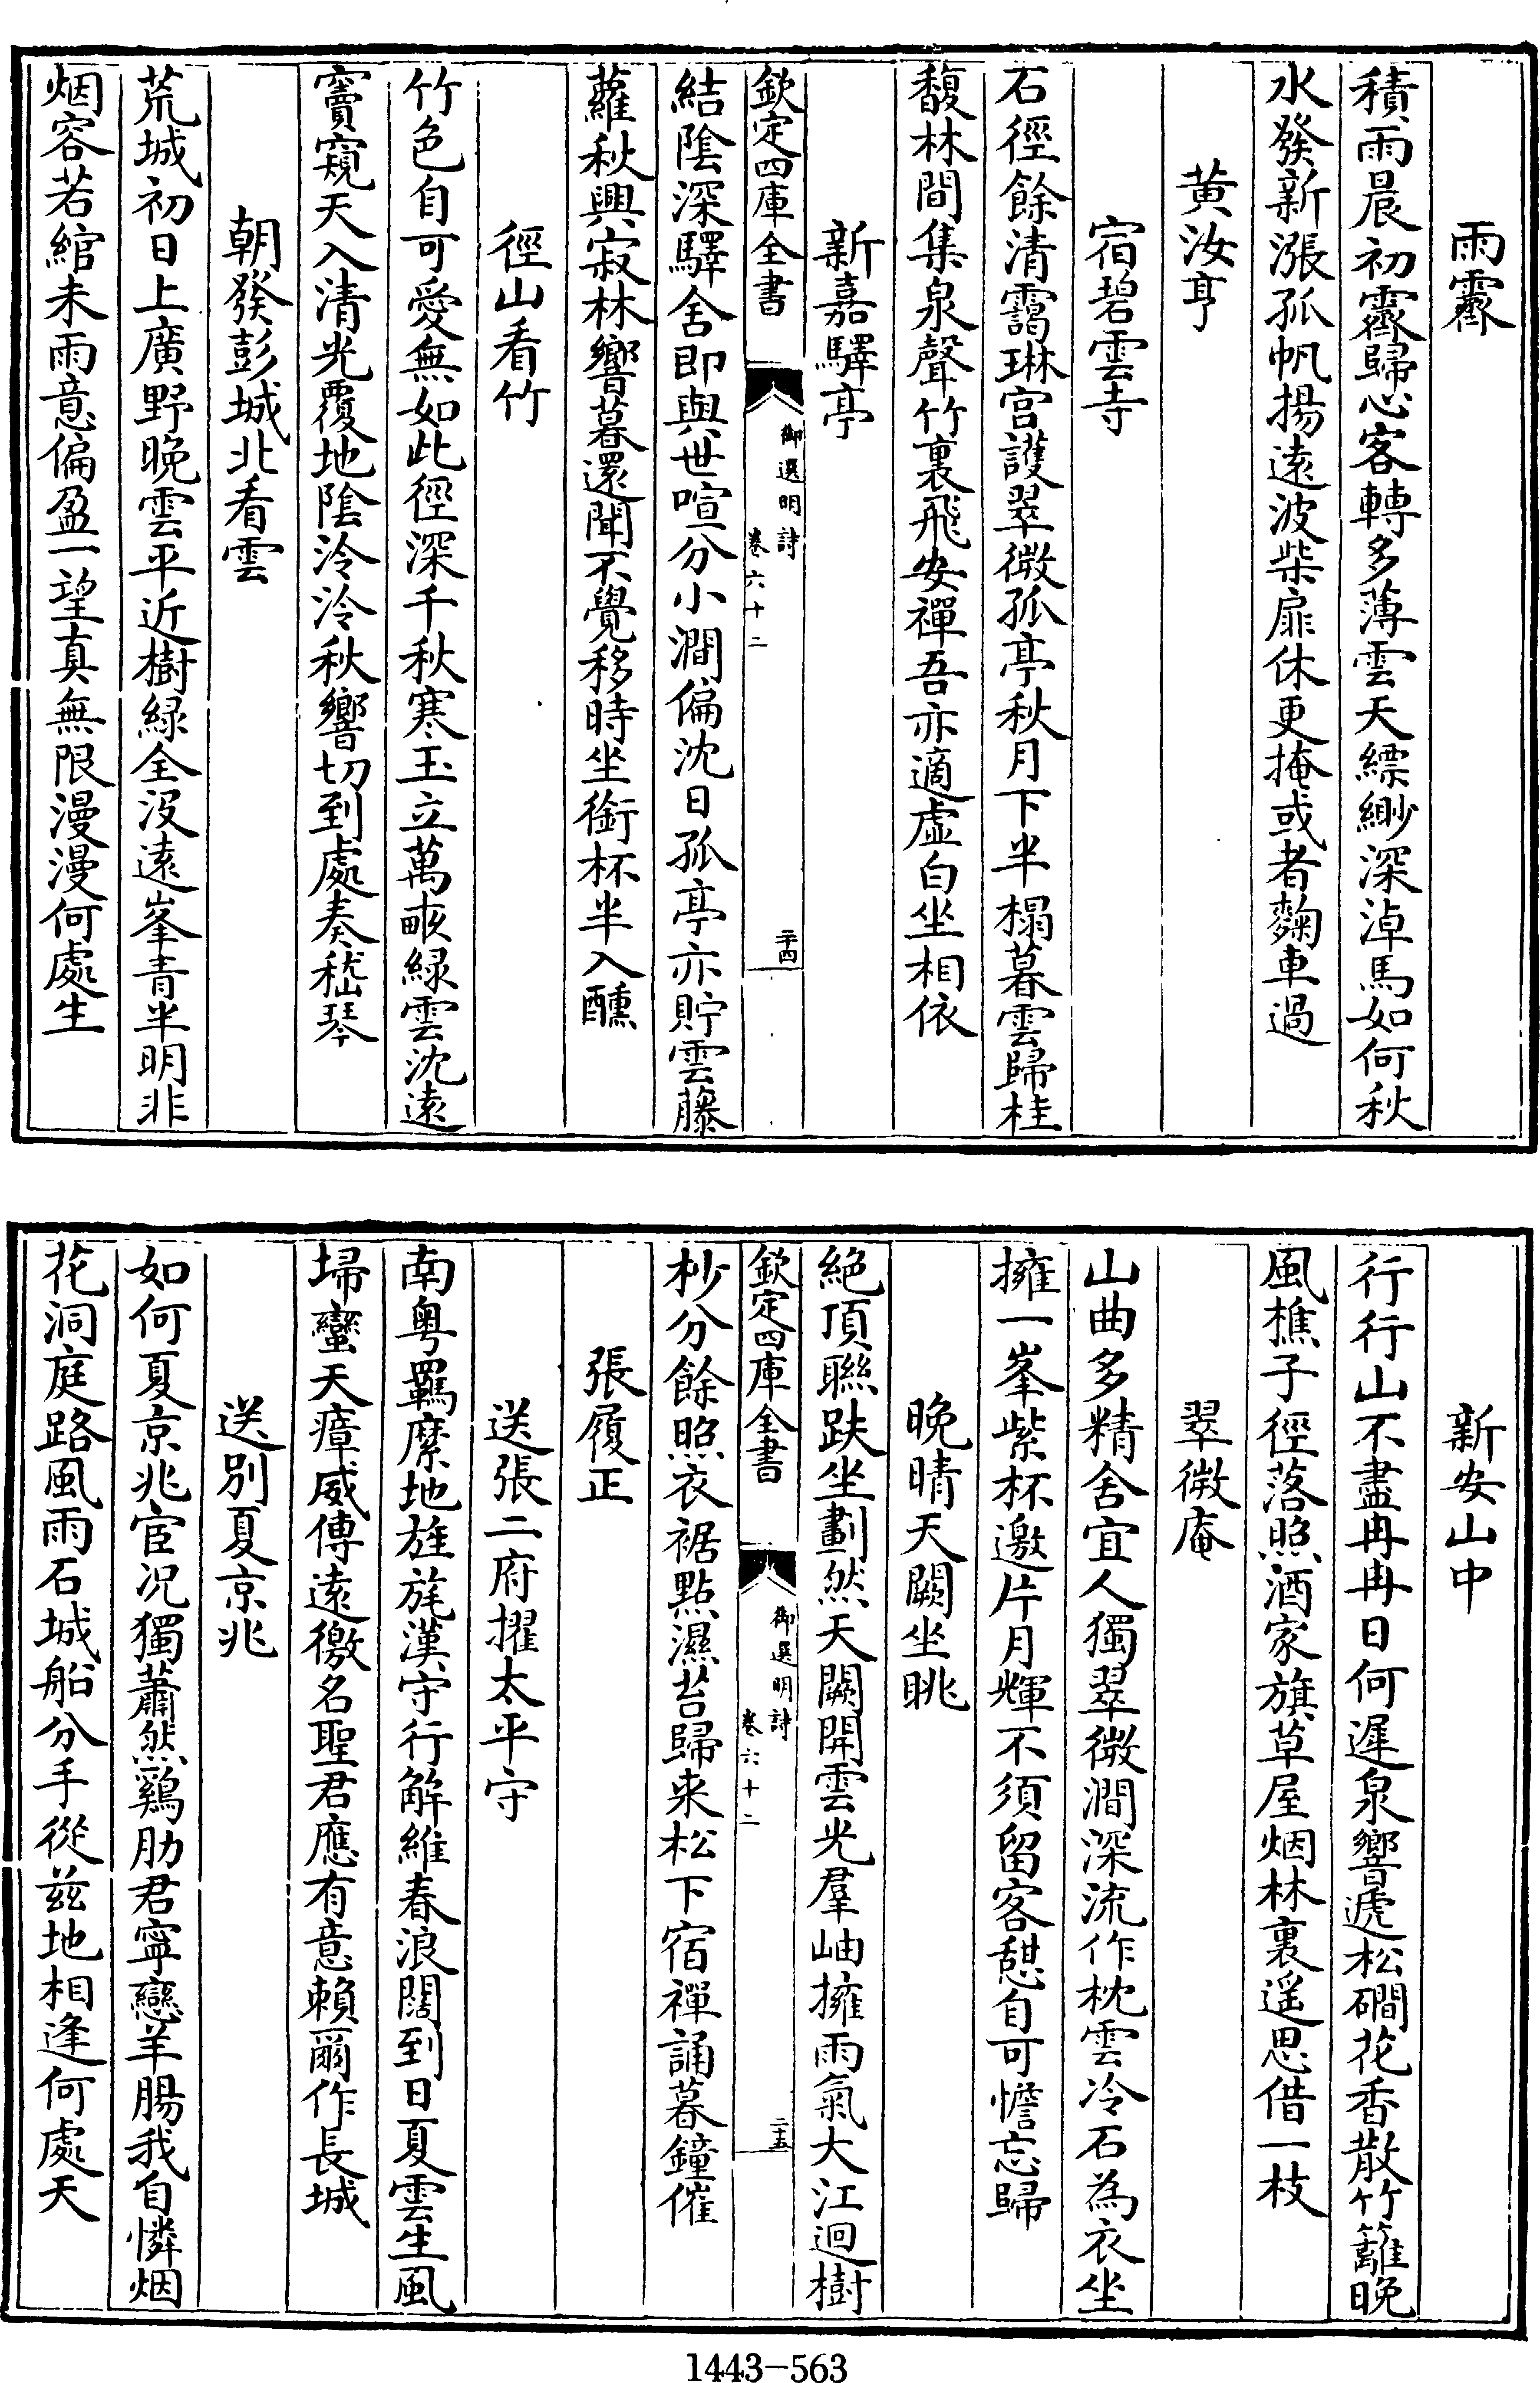 雨霽
積雨晨初霽歸心客轉多薄雲天縹緲深淖馬如何秋
水發新漲孤帆揚遠波柴扉休更掩或者麴車過
黄汝亨
宿碧雲寺
石徑餘清靄琳宫護翠微孤亭秋月下半榻暮雲歸桂
馥林間集泉聲竹裏飛安禪吾亦適虚白坐相依
新嘉驛亭
欽定四庫全書
御選明詩
卷六十二
二十四
結陰深驛舍即與世喧分小澗偏沈日孤亭亦貯雲藤
蘿秋興寂林響暮還聞不覺移時坐銜杯半入醺
徑山看竹
竹色自可愛無如此徑深千秋寒玉立萬畝緑雲沈遠
竇窺天入清光覆地陰泠泠秋響切到處奏嵇琴
朝發彭城北看雲
荒城初日上廣野晚雲平近樹緑全没遠峯青半明非
烟容若綰未雨意偏盈一望真無限漫漫何處生
新安山中
行行山不盡冉冉日何遲泉響遞松磵花香散竹籬晚
風樵子徑落照酒家旗草屋烟林裏遥思借一枝
翠微庵
山曲多精舍宜人獨翠微澗深流作枕雲冷石為衣坐
擁一峯紫杯邀片月輝不須留客憇自可憺忘歸
晚晴天闕坐眺
絶頂聯趺坐劃然天闕開雲光羣岫擁雨氣大江迴樹
欽定四庫全書
御選明詩
卷六十二
二十五
杪分餘照衣裾點濕苔歸来松下宿禪誦暮鐘催
張履正
送張二府擢太平守
南粤羈縻地旌旄漢守行解維春浪闊到日夏雲生風
埽蠻天瘴威傳遠徼名聖君應有意賴爾作長城
送别夏京兆
如何夏京兆宦况獨蕭然鷄肋君寧戀羊腸我自憐烟
花洞庭路風雨石城船分手從兹地相逢何處天
1443-563